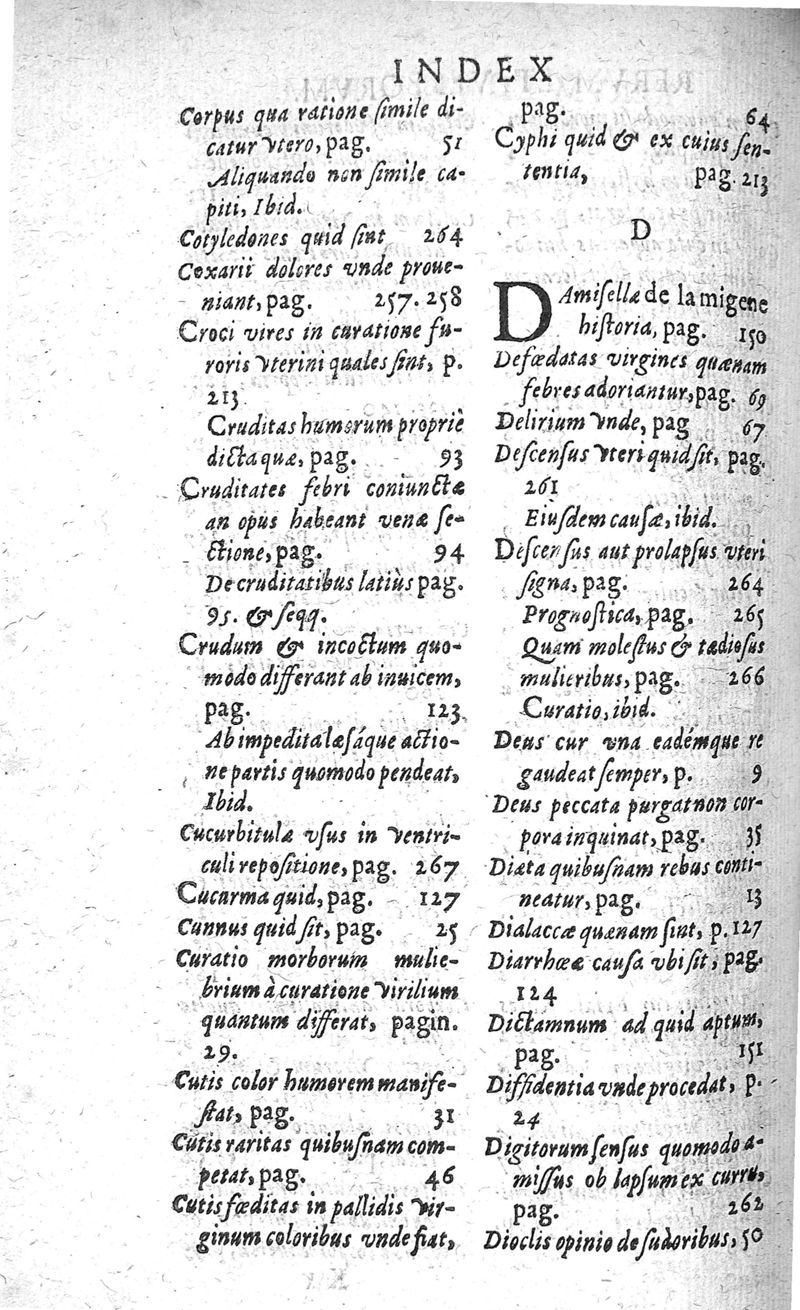 INDEX
Corpus qua ratione ſimile di-
catur vtero, pag. 51
Aliquando non ſimile ca-
piti, Ibid.
Cotyledones quid ſint 264
Coxarii dolores vnde proue-
niant, pag. 257. 258
Croci vires in curatione fu-
roris vterini quales ſint, p.
213
Cruditas humorum propriè
dicta quæ, pag. 93
Cruditates febri coniunctæ
an opus habeant venæ ſe-
ctione, pag. 94
De cruditatibus latiùs pag.
95. & ſeqq.
Crudum & incoctum quo-
modo differant ab inuicem,
pag. 123
Ab impedita læſáque actio-
ne partis quomodo pendeat,
Ibid.
Cucurbitulæ vſus in ventri-
culi repoſitione, pag. 267
Cucarma quid, pag. 127
Cunnus quid ſit, pag. 25
Curatio morborum mulie-
brium à curatione virilium
quantum differat, pagin.
29.
Cutis color humorem manife-
ſtat, pag. 31
Cutis raritas quibuſnam com-
petat, pag. 46
Cutis fœditas in pallidis vir-
ginum coloribus vnde fiat,
pag. 64
Cyphi quid & ex cuius ſen-
tentia, pag. 213
D
DAmiſellæ de la migene
hiſtoria, pag. 150
Defœdatas virgines quænam
febres adoriantur, pag. 69
Delirium vnde, pag 67
Deſcenſus vteri quid ſit, pag.
261
Eiuſdem cauſæ, ibid.
Deſcenſus aut prolapſus vteri
ſigna, pag. 264
Prognoſtica, pag. 265
Quam moleſtus & tædioſus
mulieribus, pag. 266
Curatio, ibid.
Deus cur vna eadémque re
gaudeat ſemper, p. 9
Deus peccata purgat non cor-
pora inquinat, pag. 35
Diæta quibuſnam rebus conti-
neatur, pag. 13
Dialaccæ quænam ſint, p. 127
Diarrhœæ cauſa vbi ſit, pag.
124
Dictamnum ad quid aptum,
pag. 151
Diffidentia vnde procedat, p.
24
Digitorum ſenſus quomodo a-
miſſus ob lapſum ex curru,
pag. 262
Dioclis opinio de ſudoribus, 50